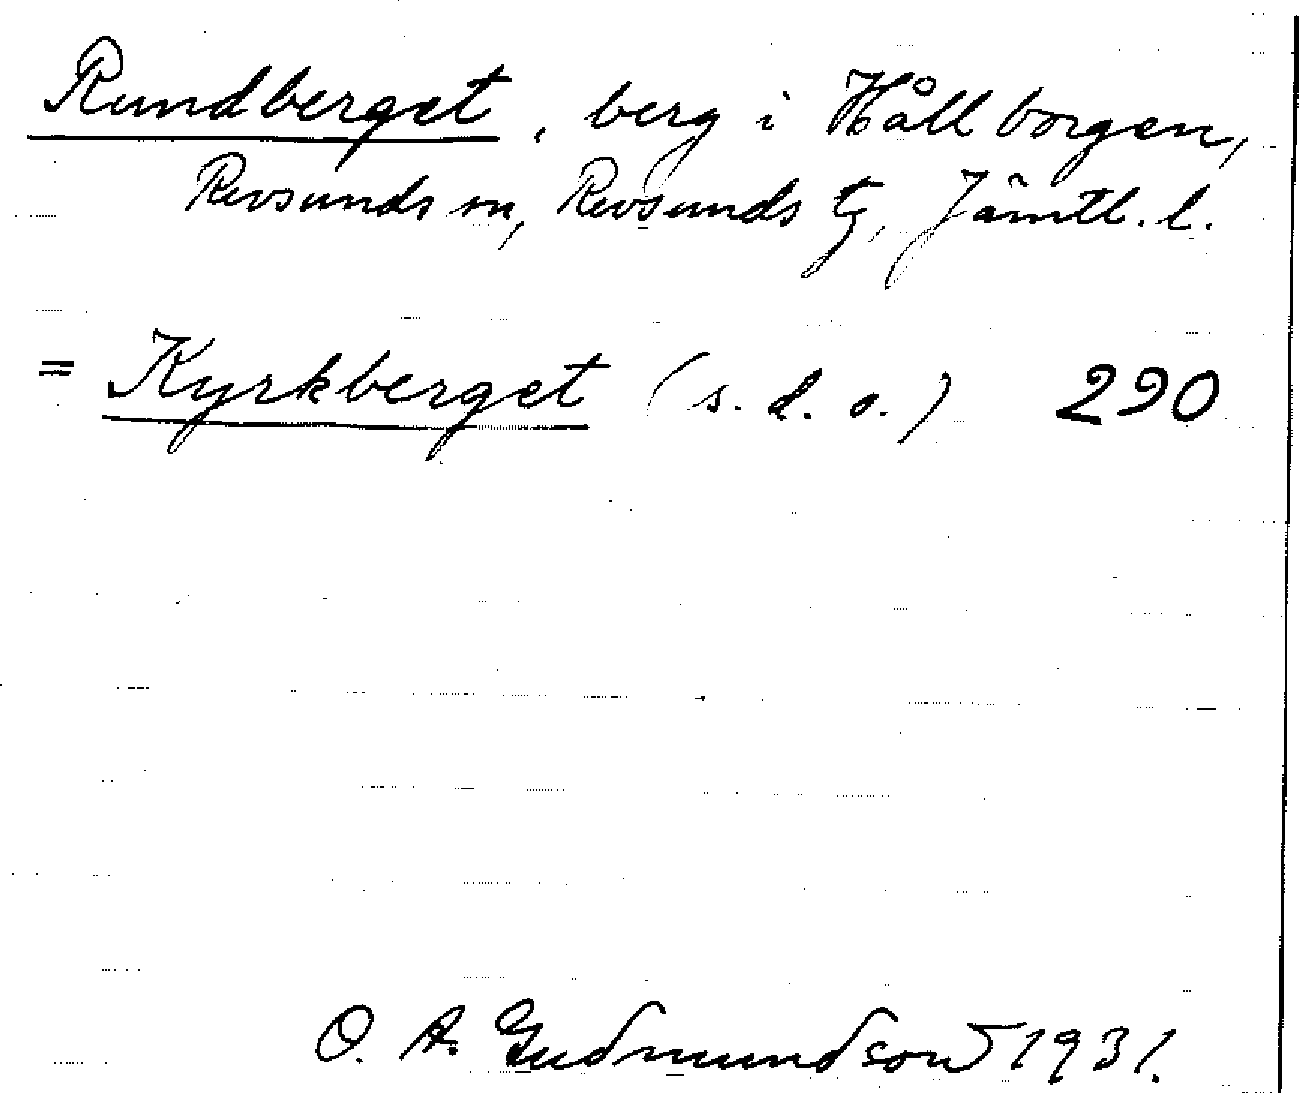 Rundberget, berg i Hållborgen,
Revsunds sn, Revsunds tg, Jämtl. l.
= Kyrkberget (s. d. o.) 290
O. A. Gudmundson 1931.